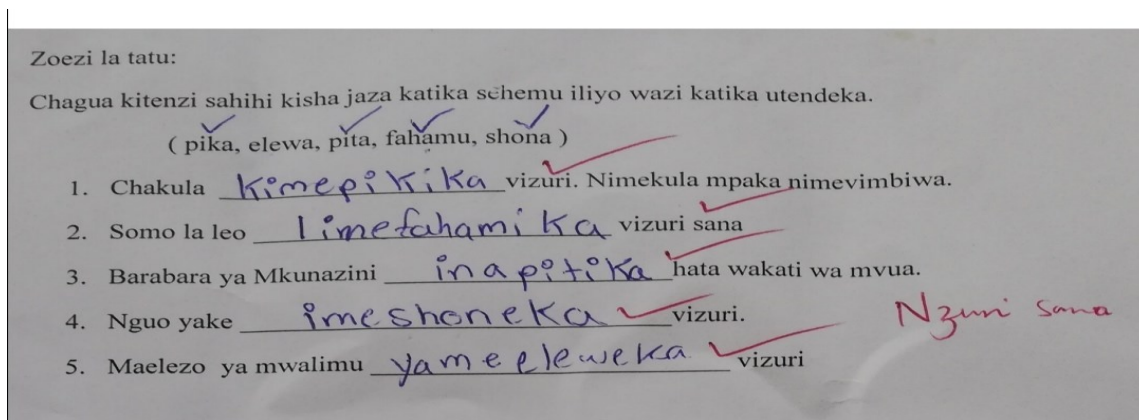 Zoezi la tatu:
Chagua kitenzi sahihi kisha jaza katika sehemu iliyo wazi katika utendeka.
( pika, elewa, pita, fahamu, shona )
1. Chakula kimepikika vizuri. Nimekula mpaka nimevimbiwa.
2. Somo la leo limefahamika vizuri sana
3. Barabara ya Mkunazini inapitika hata wakati wa mvua.
4. Nguo yake imeshoneka vizuri.
Nzuri sana
5. Maelezo ya mwalimu yameeleweka vizuri